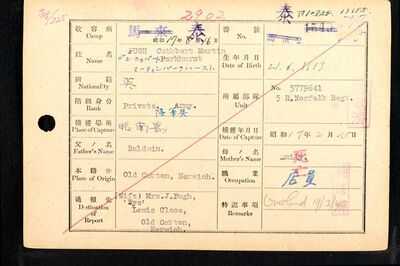 2902
泰
收容所
Camp
馬來
泰
番號
No.
姓名
Name
PUGH Cuthbert Martin
Parkhurst
生年月日
Date of Birth
國籍
Nationality
英
所屬部隊
Unit
No. 5779641
5 R.Norfolk Regt.
階級身分
Rank
Private, Army.
捕獲場所
Place of Capture
昭南島
捕獲年月日
Date of Capture
昭和17年2月15日
父ノ名
Father's Name
Baldwin.
母ノ名
Mother's Name
本籍地
Place of Origin
Old Catton, Norwich.
職業
Occupation
店員
通報先
Destination of
Report
(Wife) Mrs.J.Pugh,
Lewis Close,
Old Catton,
Norwich.
特記事項
Remarks